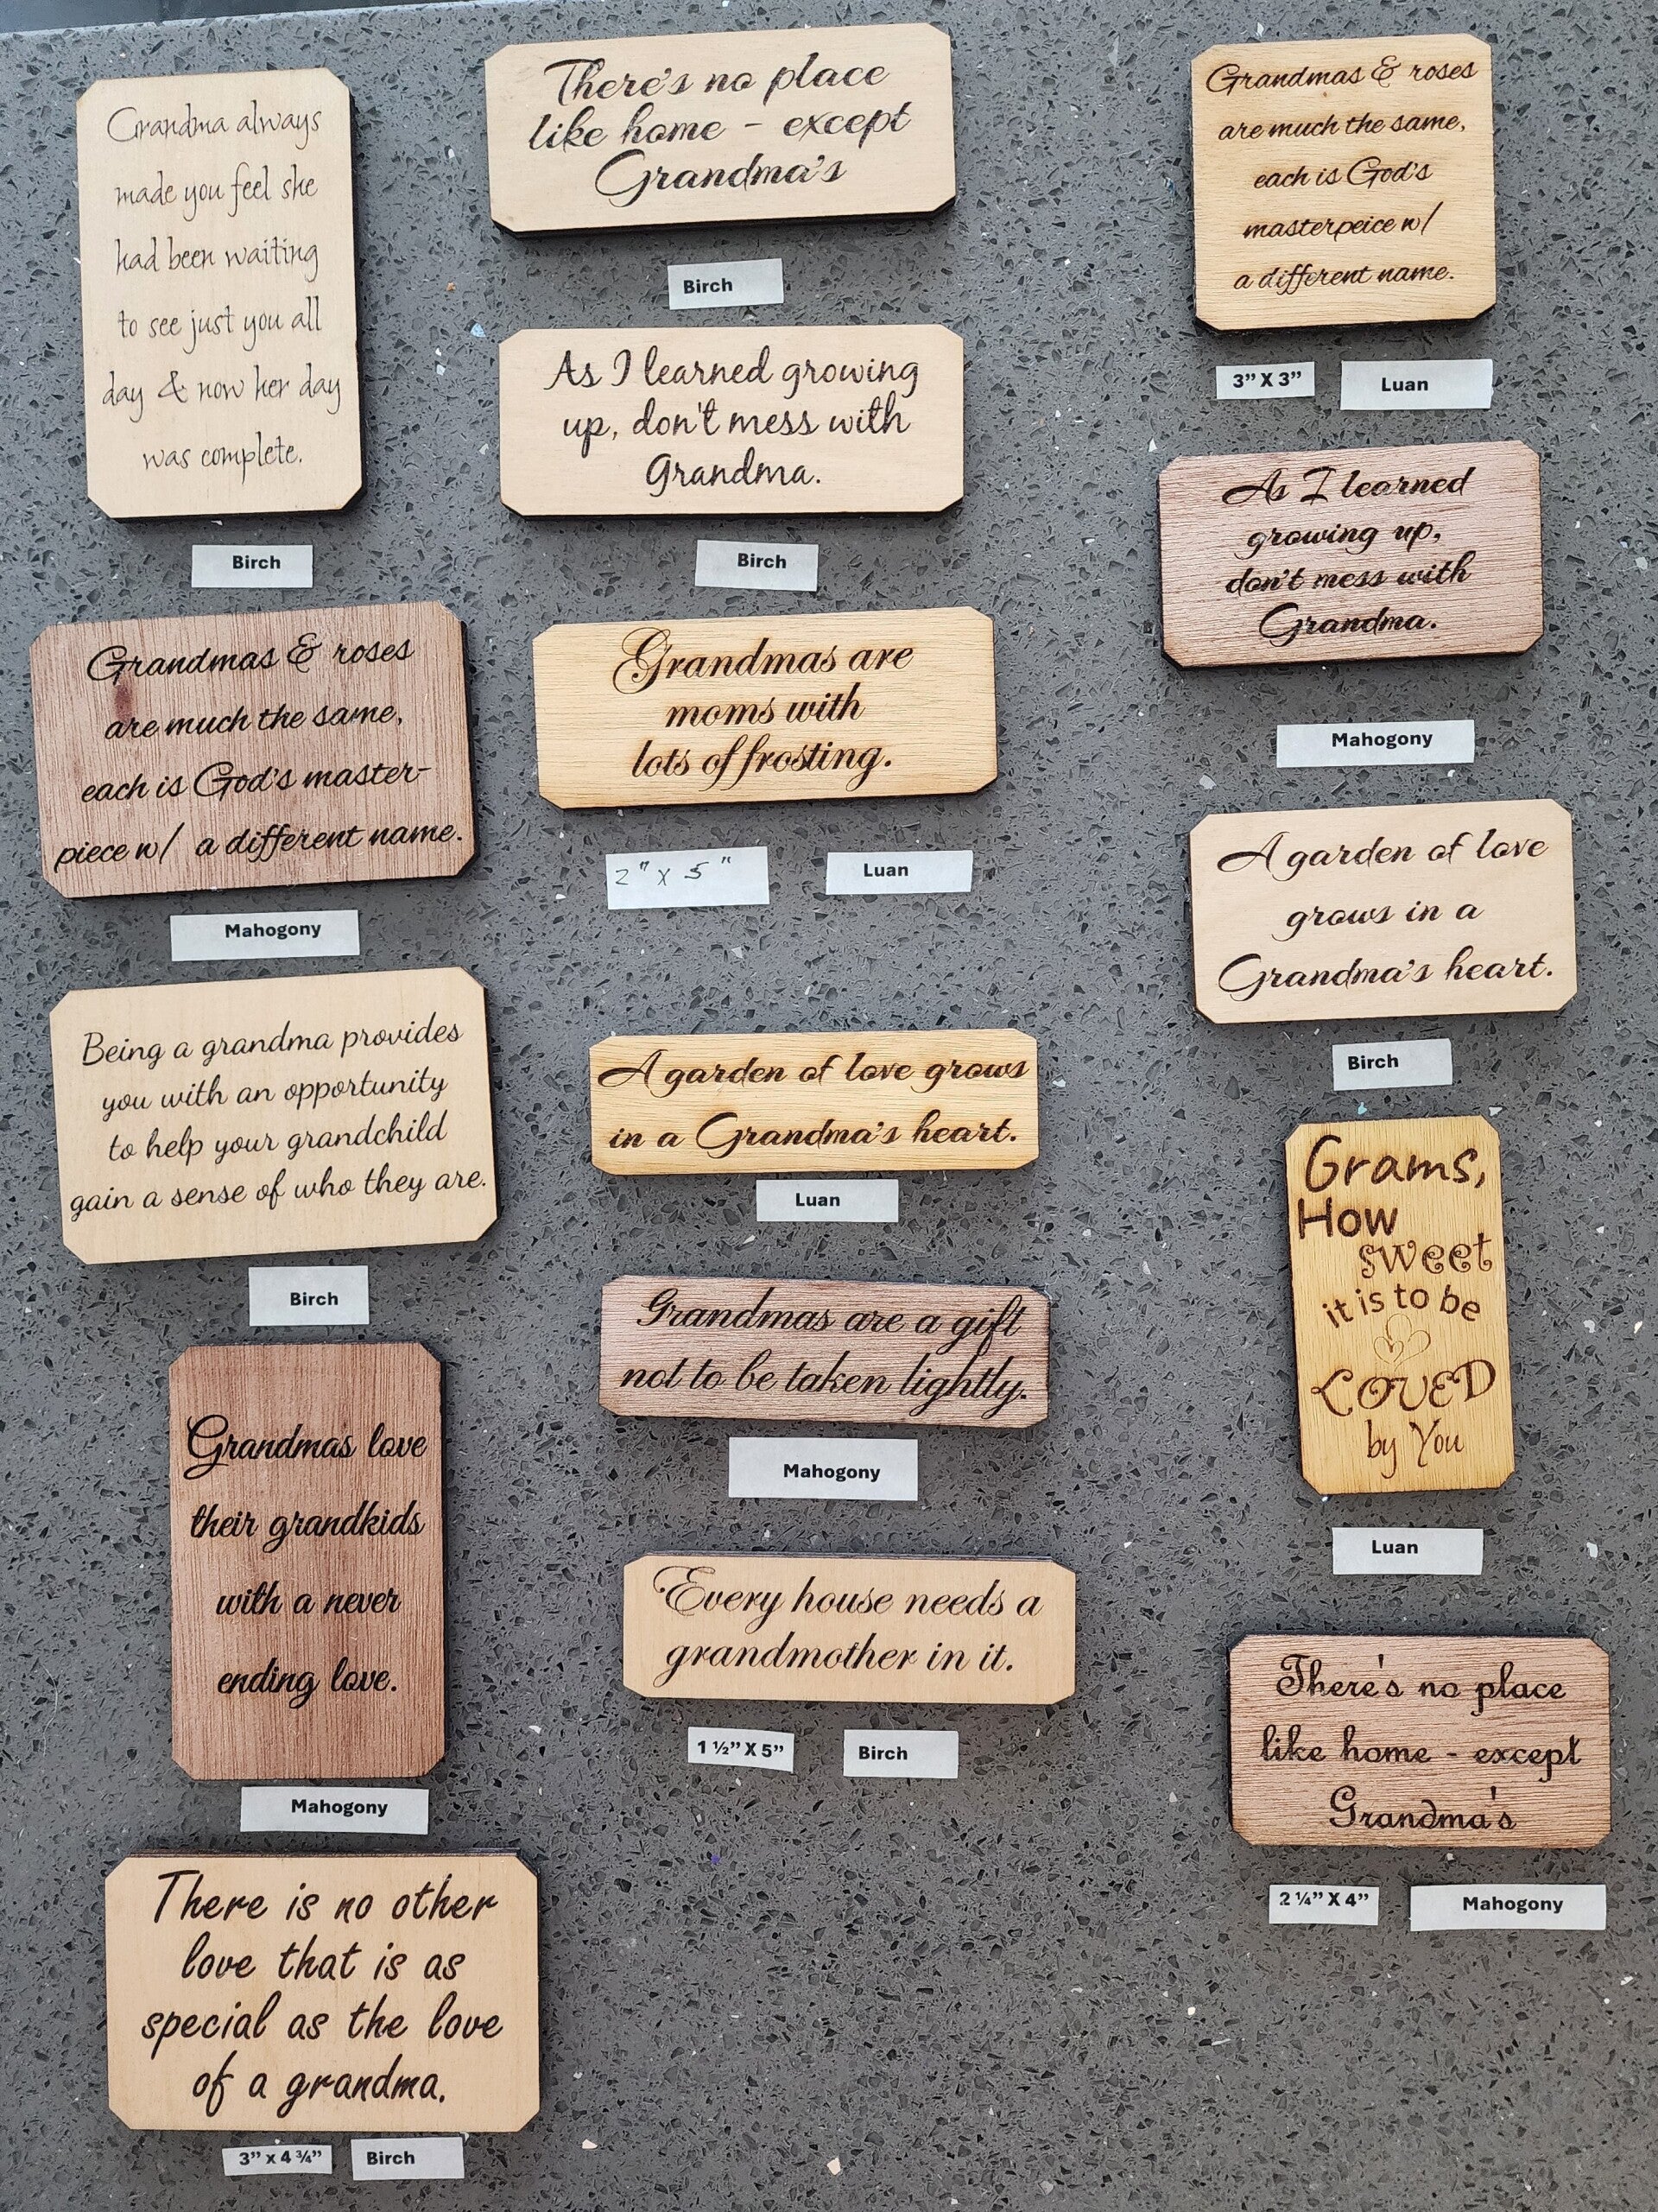 Grandma always
made you feel she
had been waiting
to see just you all
day & now her day
was complete.
Birch
Grandmas & roses
are much the same,
each is God's master-
piece w/ a different name.
Mahogony
Being a grandma provides
you with an opportunity
to help your grandchild
gain a sense of who they are.
Birch
Grandmas love
their grandkids
with a never
ending love.
Mahogony
There is no other
love that is as
special as the love
of a grandma.
3” x 4 ¾” Birch
There's no place
like home - except
Grandma's
Birch
As I learned growing
up, don't mess with
Grandma.
Birch
Grandmas are
moms with
lots of frosting.
2" x 5" Luan
A garden of love grows
in a Grandma's heart.
Luan
Grandmas are a gift
not to be taken lightly.
Mahogony
Every house needs a
grandmother in it.
1 ½” X 5” Birch
Grandmas & roses
are much the same,
each is God's
masterpeice w/
a different name.
3” X 3” Luan
As I learned
growing up,
don't mess with
Grandma.
Mahogony
A garden of love
grows in a
Grandma's heart.
Birch
Grams,
How
sweet
it is to be
LOVED
by You
Luan
There's no place
like home - except
Grandma's
2 ¼” X 4” Mahogony